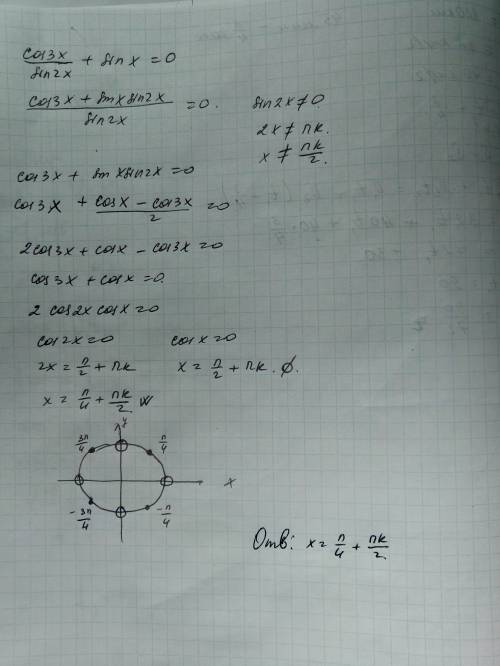 cos3x/sin2x + sinx = 0
(cos3x + sinx sin2x)/sin2x = 0. sin2x ≠ 0.
2x ≠ πk.
x ≠ πk/2.
cos3x + sinx sin2x = 0
cos3x + (cosx − cos3x)/2 = 0
2cos3x + cosx − cos3x = 0
cos3x + cosx = 0.
2 cos2x cosx = 0
cos2x = 0 cosx = 0
2x = π/2 + πk x = π/2 + πk. ∅.
x = π/4 + πk/2
y
3π/4 π/4
x
−3π/4 −π/4
Отв: x = π/4 + πk/2